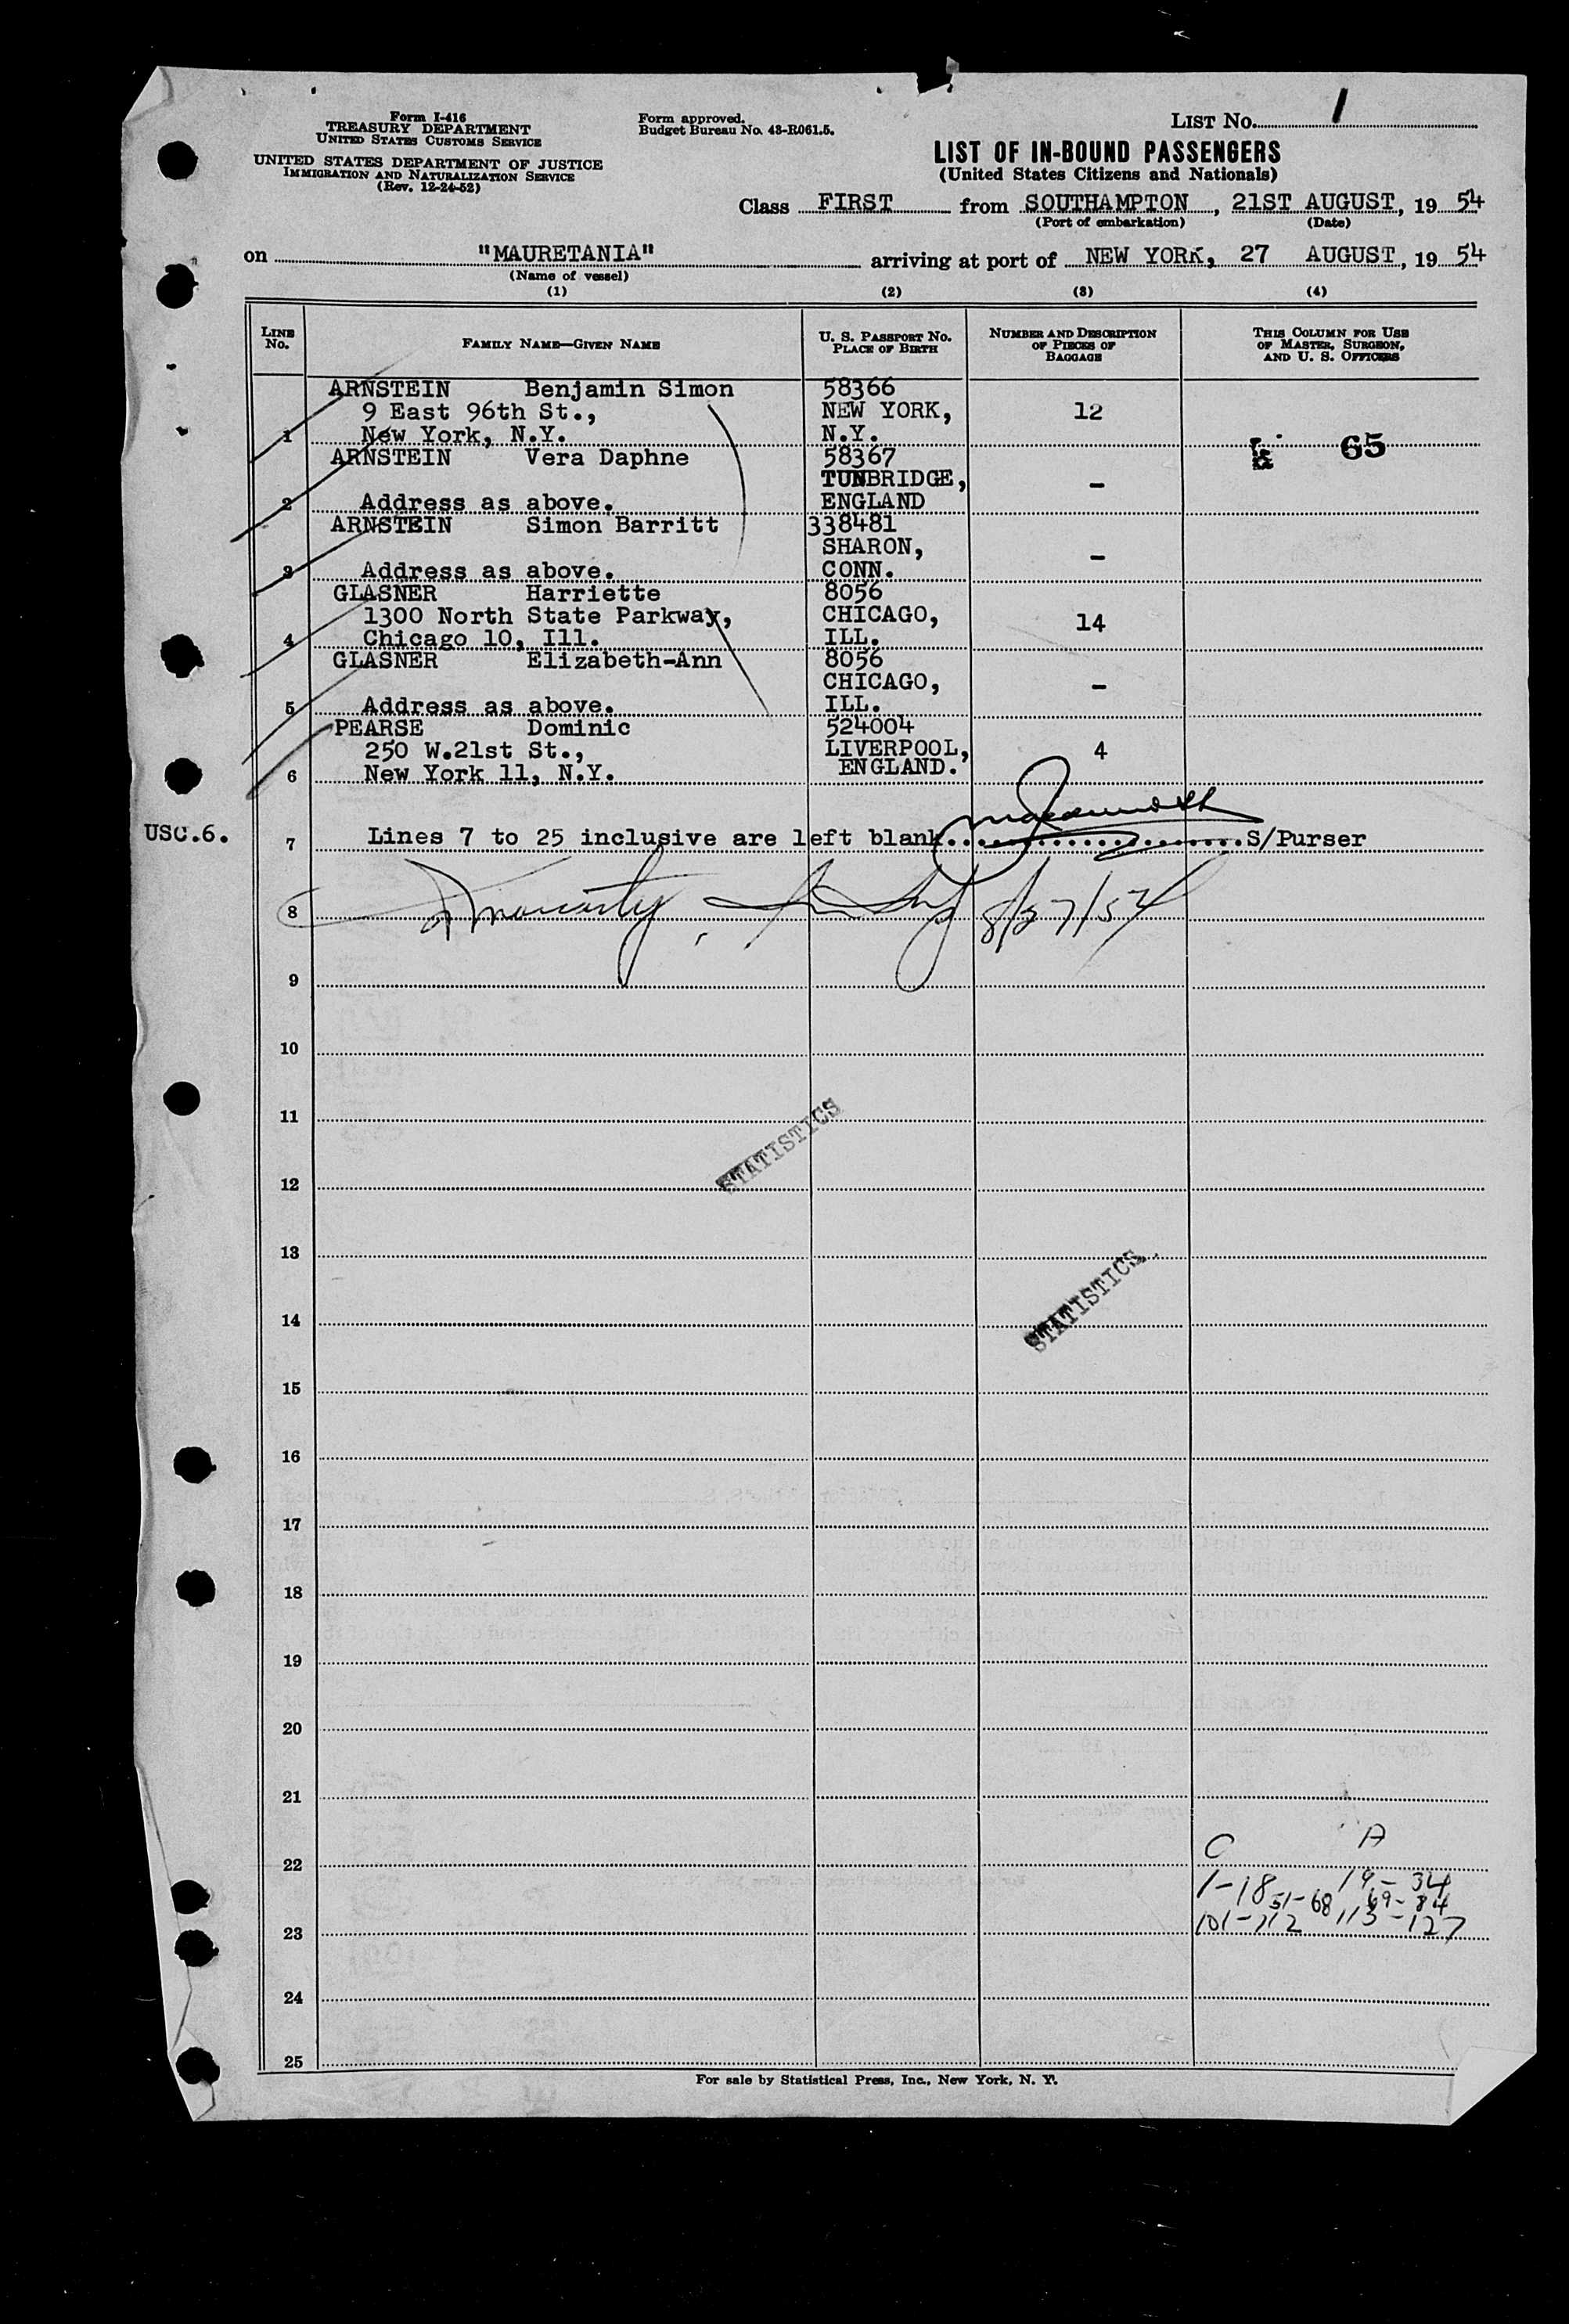 Form I-416
TREASURY DEPARTMENT
UNITED STATES CUSTOMS SERVICE
UNITED STATES DEPARTMENT OF JUSTICE
IMMIGRATION AND NATURALIZATION SERVICE
(Rev. 12-24-52)
Form approved.
Budget Bureau No. 43-R061.5.
LIST No. 1
LIST OF IN-BOUND PASSENGERS
(United States Citizens and Nationals)
Class FIRST from SOUTHAMPTON, 21ST AUGUST, 19 54
(Port of embarkation) (Date)
on "MAURETANIA" arriving at port of NEW YORK, 27 AUGUST, 19 54
(Name of vessel)
(1) (2) (3) (4)
LINE No. FAMILY NAME—GIVEN NAME U. S. PASSPORT No. PLACE OF BIRTH NUMBER AND DESCRIPTION OF PIECES OF BAGGAGE THIS COLUMN FOR USE OF MASTER, SURGEON, AND U. S. OFFICERS
ARNSTEIN Benjamin Simon 58366
9 East 96th St., NEW YORK, 12
1 New York, N.Y. N.Y. 65
ARNSTEIN Vera Daphne 58367
TUNBRIDGE, –
2 Address as above. ENGLAND
ARNSTEIN Simon Barritt 338481
SHARON, –
3 Address as above. CONN.
GLASNER Harriette 8056
1300 North State Parkway, CHICAGO, 14
4 Chicago 10, Ill. ILL.
GLASNER Elizabeth-Ann 8056
CHICAGO, –
5 Address as above. ILL.
PEARSE Dominic 524004
250 W.21st St., LIVERPOOL, 4
6 New York 11, N.Y. ENGLAND.
USC.6.
7 Lines 7 to 25 inclusive are left blank. S/Purser
8 8/27/54
9
10
11
STATISTICS
12
13
STATISTICS
14
15
16
17
18
19
20
21
C A
22
1-18 19-34
51-68 69-84
101-112 113-127
23
24
25
For sale by Statistical Press, Inc., New York, N. Y.